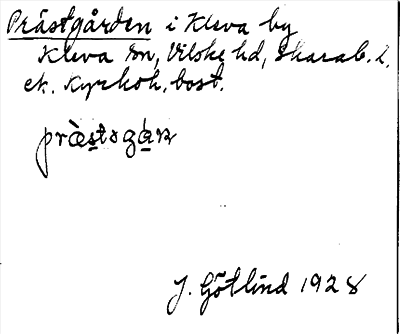 Prästgården i Kleva by
Kleva sn, Vilske hd, Skarab. l.
ek. Kyrkoh. bost.
præ̀stəgán
J. Götlind 1928